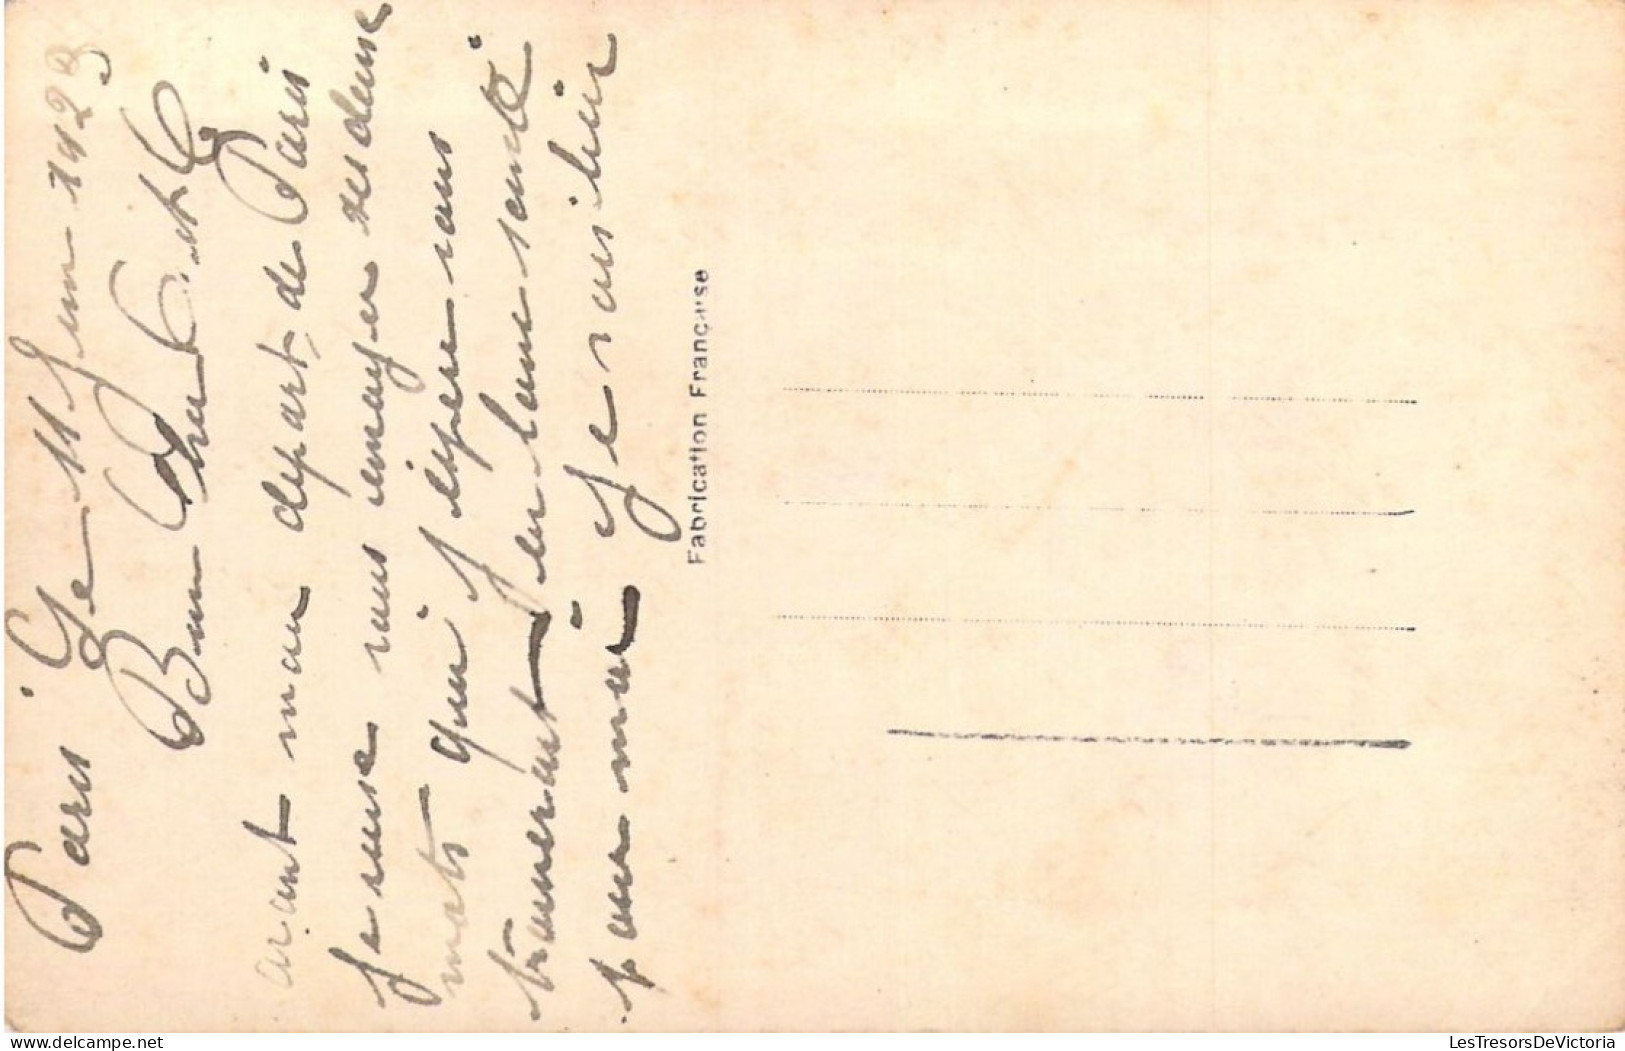 Paris Le 11 Juin 1923
Bien Cher
avant mon depart de Paris
Je viens vous envoyer ses deux
mots qui J espere vous
trouveront en bonne santé
pour moi Je vais bien
Fabrication Française
delcampe.net
LesTresorsDeVictoria